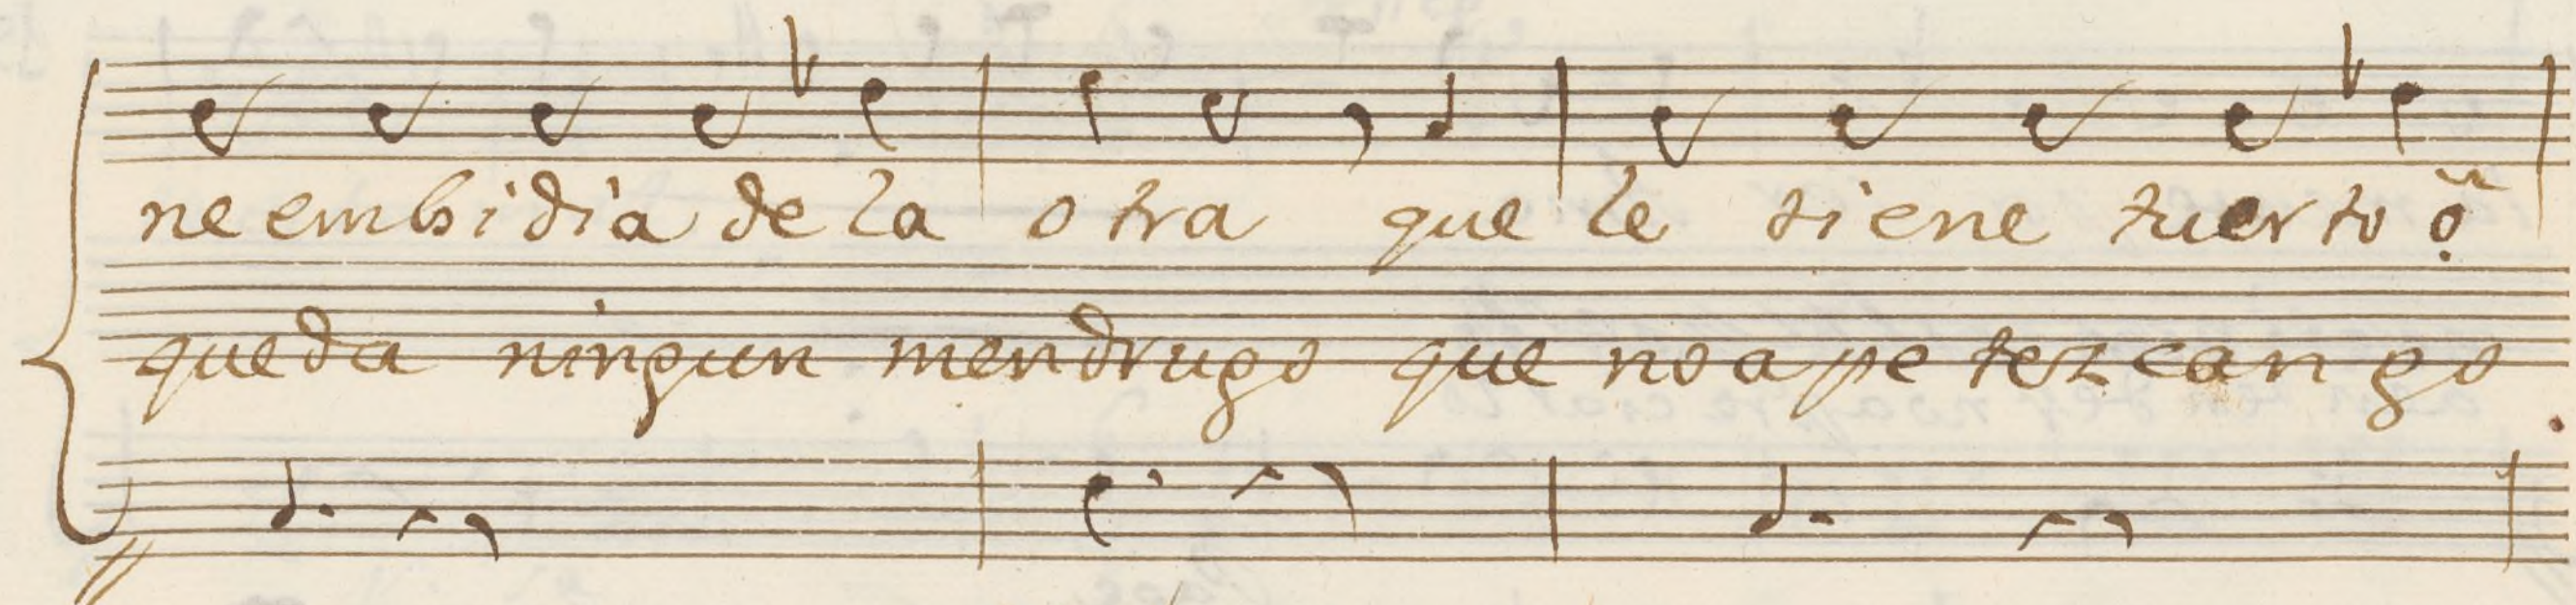 ne embidia de la otra que le tiene tuerto õ
queda ningun mendrugo que no apetezcan go